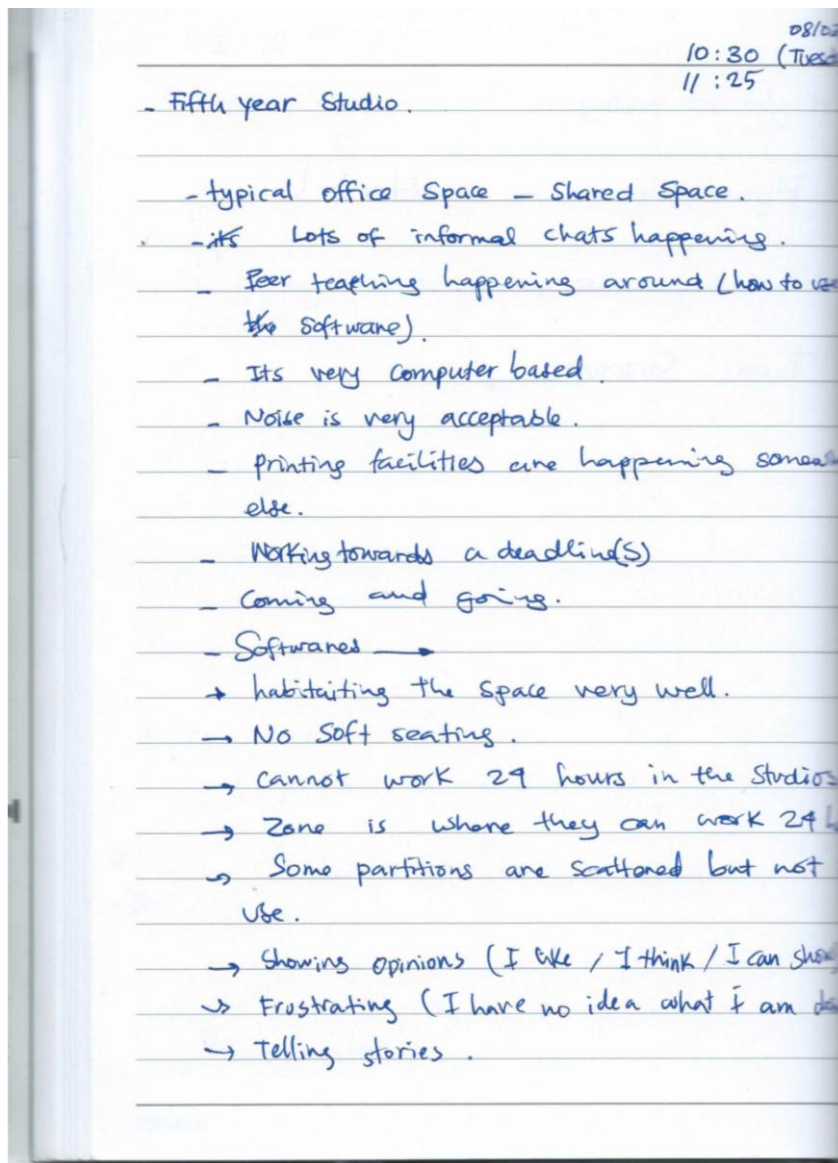 08/02
10:30 (Tuesd
11:25
- Fifth year Studio.
- typical office Space - Shared Space.
- its Lots of informal chats happening.
- Peer teaching happening around (how to use
the software).
- Its very computer based.
- Noise is very acceptable.
- printing facilities are happening somew
else.
- Working towards a deadline(s)
- Coming and going.
- Softwares →
→ habitaiting the space very well.
→ No Soft seating.
→ Cannot work 24 hours in the Studios
→ Zone is where they can work 24 h
→ Some partitions are scattered but not
use.
→ Showing opinions (I like / I think / I can show
→ Frustrating (I have no idea what I am do
→ Telling stories.